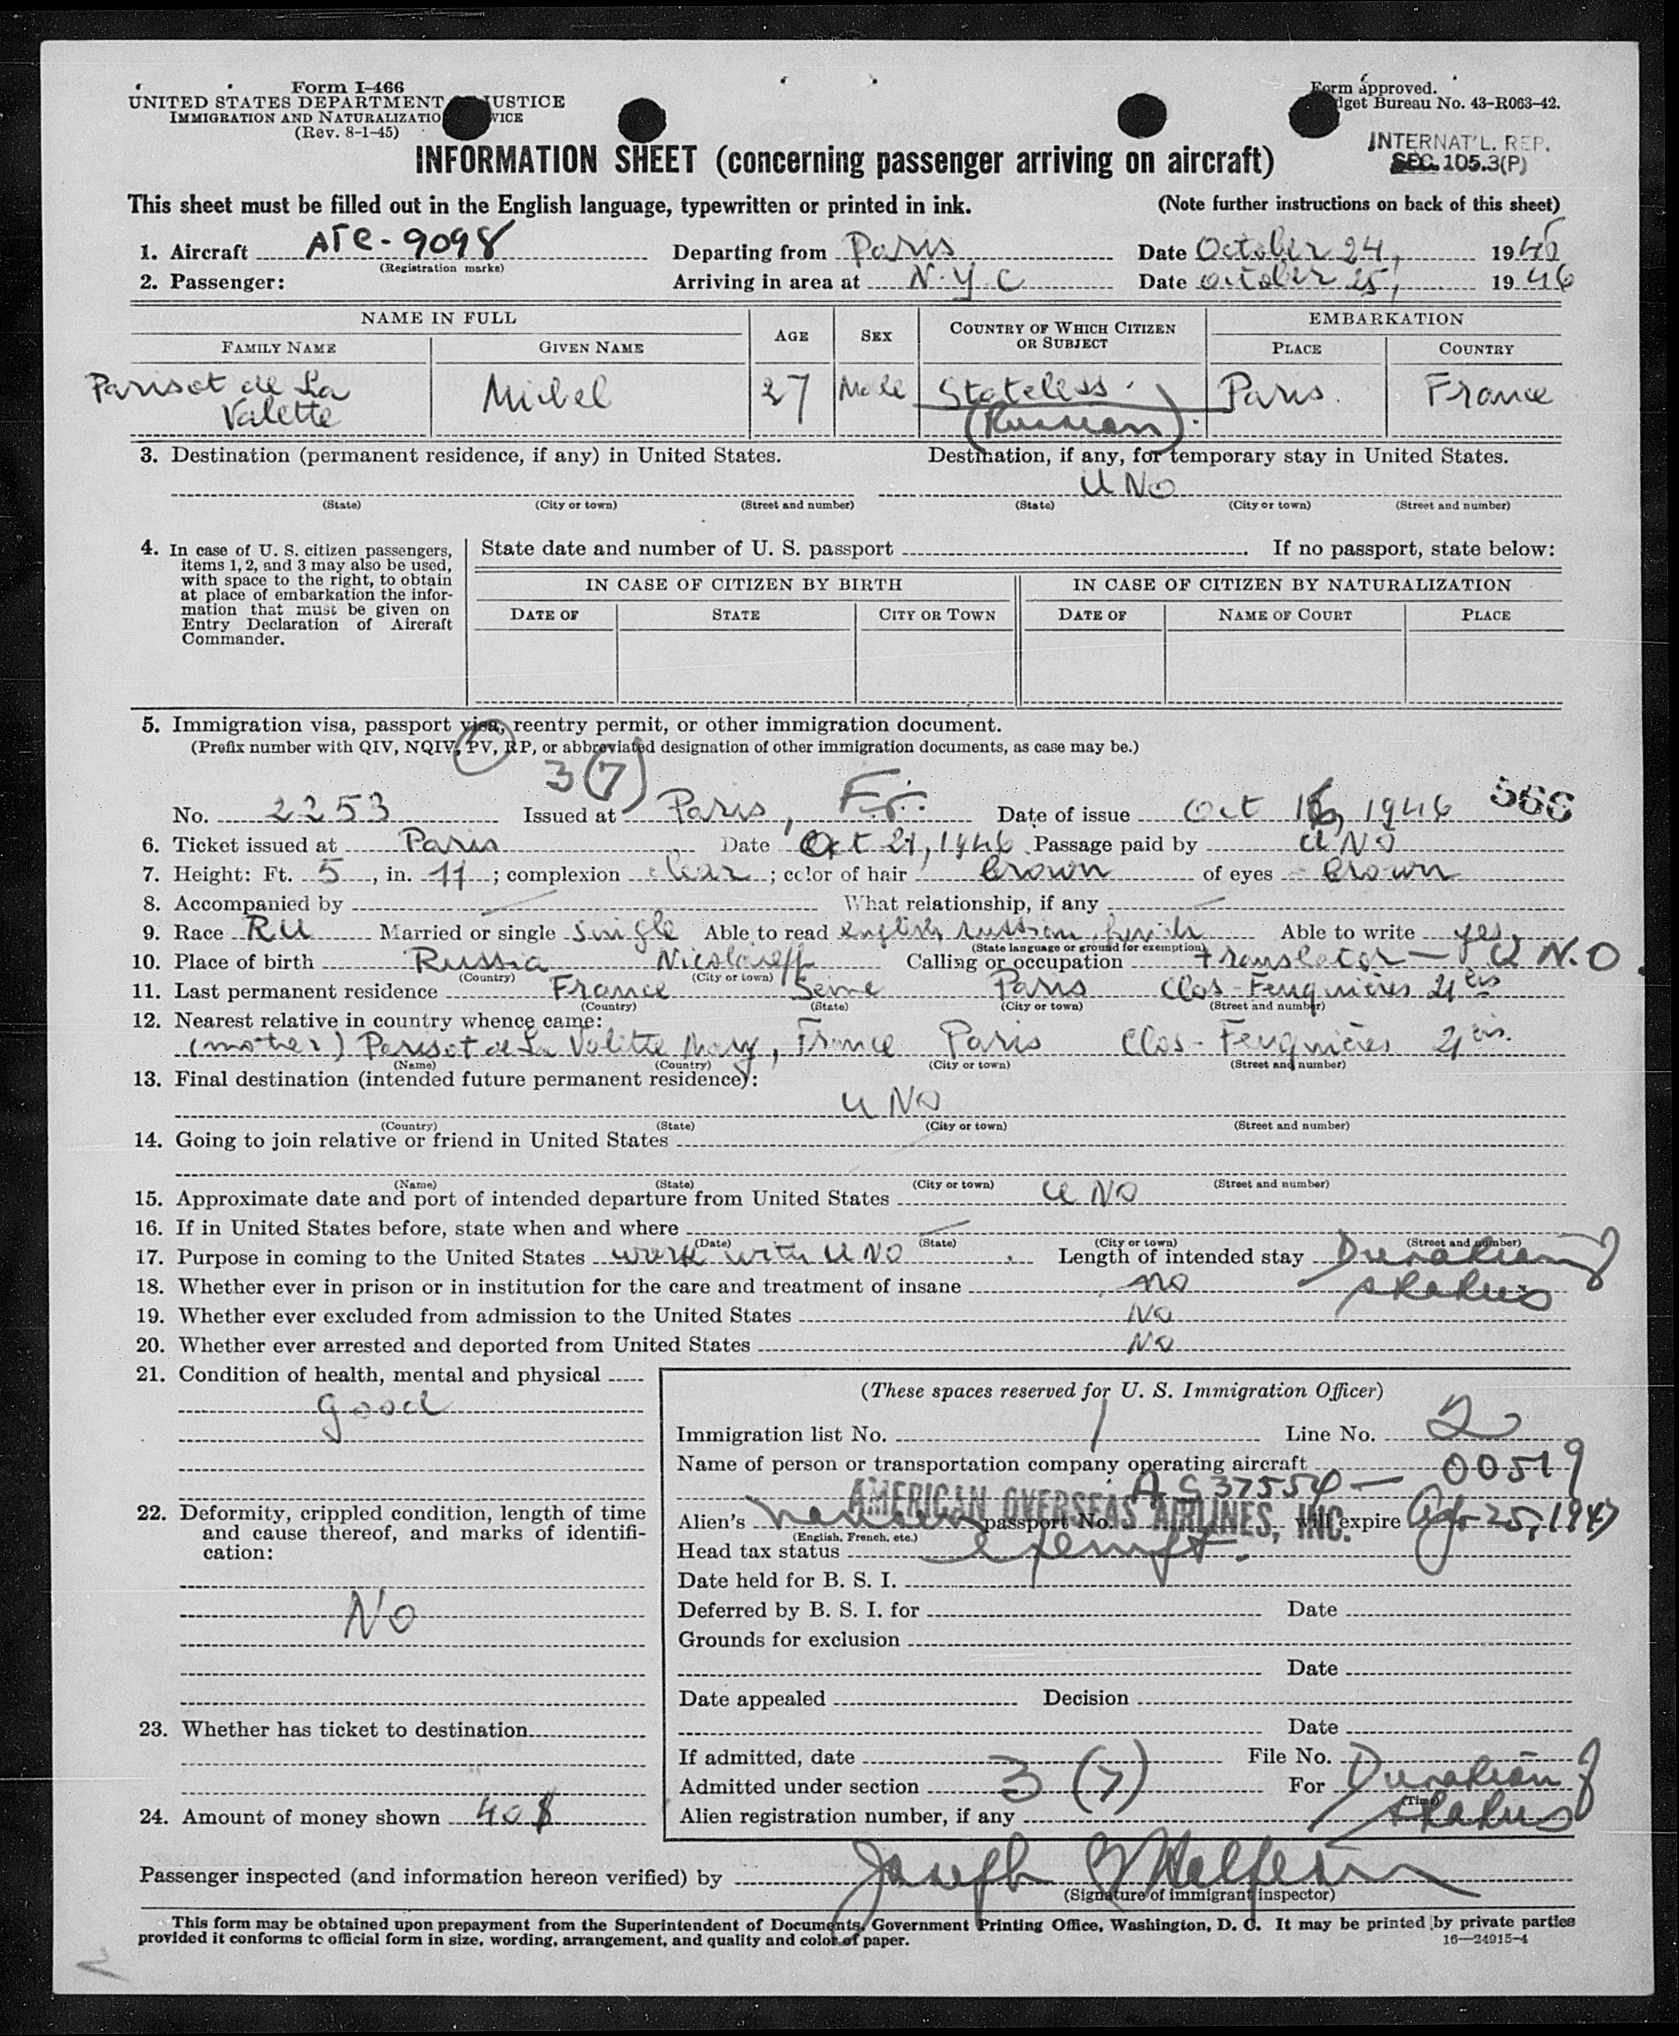 Form I-466
UNITED STATES DEPARTMENT JUSTICE
IMMIGRATION AND NATURALIZATIO VICE
(Rev. 8-1-45)
Form approved.
dget Bureau No. 43-R063-42.
INTERNAT'L. REP.
SEC. 105.3(P)
INFORMATION SHEET (concerning passenger arriving on aircraft)
This sheet must be filled out in the English language, typewritten or printed in ink. (Note further instructions on back of this sheet)
1. Aircraft ATC-9098 Departing from Paris Date October 24, 1946
(Registration marks)
2. Passenger: Arriving in area at N.Y.C Date October 25, 1946
NAME IN FULL AGE SEX COUNTRY OF WHICH CITIZEN OR SUBJECT EMBARKATION
FAMILY NAME GIVEN NAME PLACE COUNTRY
Parisot de La Valette Michel 27 Male Stateless. (Russian). Paris. France
3. Destination (permanent residence, if any) in United States. Destination, if any, for temporary stay in United States.
UNO
(State) (City or town) (Street and number) (State) (City or town) (Street and number)
4. In case of U. S. citizen passengers,
items 1, 2, and 3 may also be used,
with space to the right, to obtain
at place of embarkation the infor-
mation that must be given on
Entry Declaration of Aircraft
Commander.
State date and number of U. S. passport . If no passport, state below:
IN CASE OF CITIZEN BY BIRTH IN CASE OF CITIZEN BY NATURALIZATION
DATE OF STATE CITY OR TOWN DATE OF NAME OF COURT PLACE
5. Immigration visa, passport visa, reentry permit, or other immigration document.
(Prefix number with QIV, NQIV, PV, RP, or abbreviated designation of other immigration documents, as case may be.)
3(7)
No. 2253 Issued at Paris, Fr. Date of issue Oct 16, 1946 566
6. Ticket issued at Paris Date Oct 21, 1946 Passage paid by UNO
7. Height: Ft. 5, in. 11; complexion clear; color of hair brown of eyes brown
8. Accompanied by What relationship, if any
9. Race RU Married or single single Able to read english, russian, french Able to write yes.
(State language or ground for exemption)
10. Place of birth Russia Nicolaieff Calling or occupation translator - U N.O.
(Country) (City or town)
11. Last permanent residence France Seine Paris Clos-Feuquières 21 bis
(Country) (State) (City or town) (Street and number)
12. Nearest relative in country whence came:
(mother) Parisot de La Valette Mary, France Paris Clos-Feuquières 21 bis.
(Name) (Country) (City or town) (Street and number)
13. Final destination (intended future permanent residence):
UNO
(Country) (State) (City or town) (Street and number)
14. Going to join relative or friend in United States
(Name) (State) (City or town) (Street and number)
15. Approximate date and port of intended departure from United States UNO
16. If in United States before, state when and where
(Date) (State) (City or town) (Street and number)
17. Purpose in coming to the United States work with UNO. Length of intended stay Duration of status
18. Whether ever in prison or in institution for the care and treatment of insane no
19. Whether ever excluded from admission to the United States No
20. Whether ever arrested and deported from United States No
21. Condition of health, mental and physical
good
22. Deformity, crippled condition, length of time
and cause thereof, and marks of identifi-
cation:
No
23. Whether has ticket to destination
24. Amount of money shown 40$
(These spaces reserved for U. S. Immigration Officer)
Immigration list No. 1 Line No. 2
Name of person or transportation company operating aircraft
AMERICAN OVERSEAS AIRLINES, INC.
AG 37554 - 00519
Alien's nansen passport No. will expire Apr 25, 1947
(English, French, etc.)
Head tax status exempt.
Date held for B. S. I.
Deferred by B. S. I. for Date
Grounds for exclusion
Date
Date appealed Decision
Date
If admitted, date File No.
Admitted under section 3(7) For Duration of status
(Time)
Alien registration number, if any
Passenger inspected (and information hereon verified) by Joseph
(Signature of immigrant inspector)
This form may be obtained upon prepayment from the Superintendent of Documents, Government Printing Office, Washington, D. C. It may be printed by private parties
provided it conforms to official form in size, wording, arrangement, and quality and color of paper.
16—24915-4